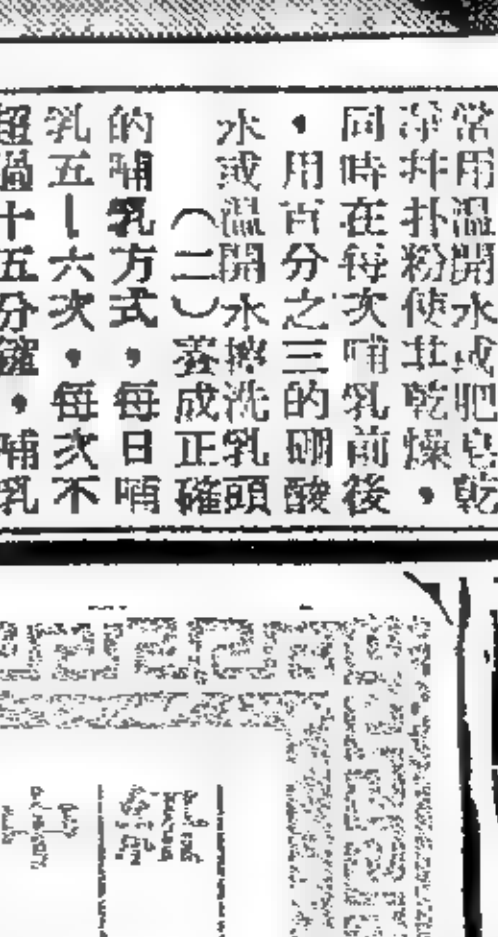 常用溫開水或肥皂乾
淨幷扑粉使其乾燥，
同時在每次哺乳前後
，用百分之三的硼酸
水或溫開水擦洗乳頭
（二）養成正確
的哺乳方式，每日哺
乳五－六次，每次不
超過十五分鐘，哺乳